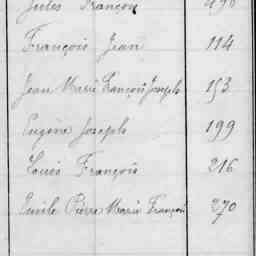 Jules François 490
François Jean 114
Jean Marie François Joseph 153
Eugène Joseph 199
Louis François 216
Emile Pierre Marie François 270